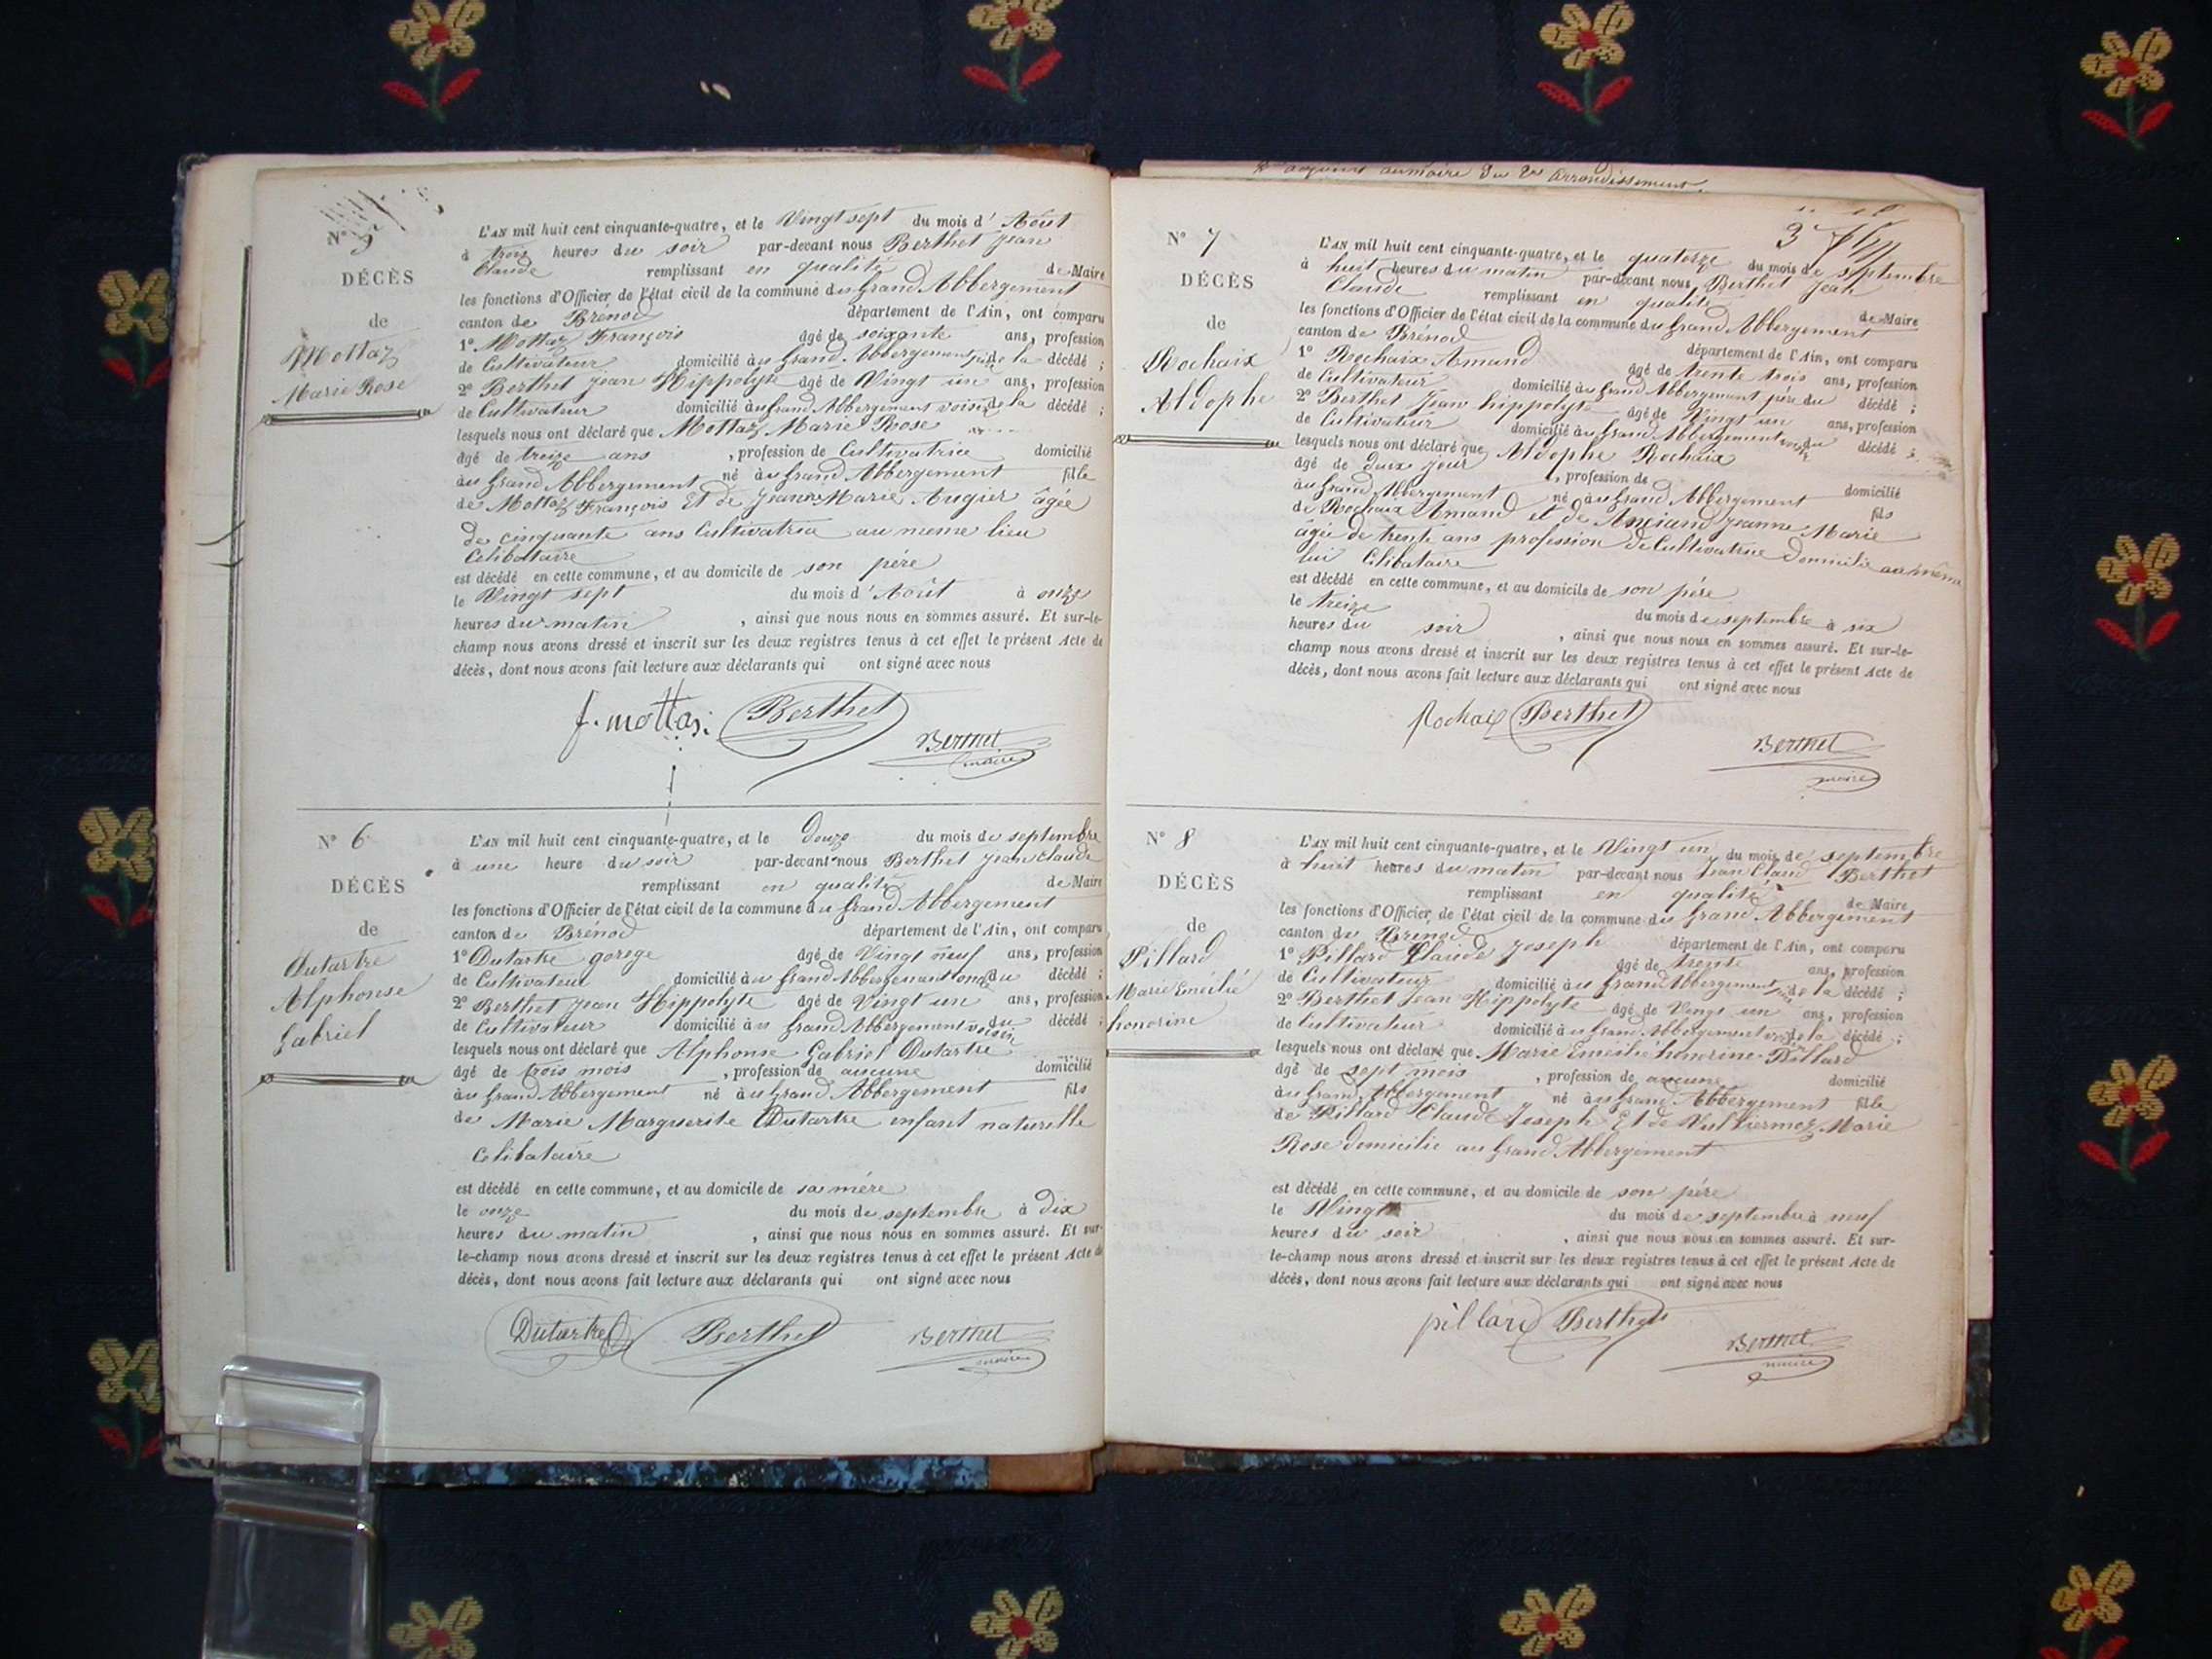 N° 5
DÉCÈS
de
Mottaz
Marie Rose
L'AN mil huit cent cinquante-quatre, et le Vingt sept du mois d' Aôut
à trois heures du soir par-devant nous Berthet Jean
Claude remplissant en qualité de Maire
les fonctions d'Officier de l'état civil de la commune du Grand Abbergement
canton de Brénod département de l'Ain, ont comparu
1° Mottaz François âgé de soixante ans, profession
de Cultivateur domicilié au Grand Abbergement père de la décédé ;
2° Berthet Jean Hippolyte âgé de Vingt un ans, profession
de Cultivateur domicilié au Grand Abbergement voisin de la décédé ;
lesquels nous ont déclaré que Mottaz Marie Rose
âgé de treize ans , profession de Cultivatrice domicilié
au Grand Abbergement né au Grand Abbergement fille
de Mottaz François Et de Jeanne Marie Augier âgée
de cinquante ans Cultivatrice au meme lieu
Celibataire
est décédé en cette commune, et au domicile de son père
le Vingt sept du mois d' Aôut à onze
heures du matin , ainsi que nous nous en sommes assuré. Et sur-le-
champ nous avons dressé et inscrit sur les deux registres tenus à cet effet le présent Acte de
décès, dont nous avons fait lecture aux déclarants qui ont signé avec nous
f. mottaz Berthet
Berthet
maire
N° 6
DÉCÈS
de
Dutartre
Alphonse
Gabriel
L'AN mil huit cent cinquante-quatre, et le douze du mois de septembre
à une heure du soir par-devant nous Berthet Jean Claude
remplissant en qualité de Maire
les fonctions d'Officier de l'état civil de la commune du Grand Abbergement
canton de Brénod département de l'Ain, ont comparu
1° Dutartre gorege âgé de Vingt neuf ans, profession
de Cultivateur domicilié au Grand Abbergement oncle du décédé ;
2° Berthet Jean Hippolyte âgé de Vingt un ans, profession
de Cultivateur domicilié au Grand Abbergement voisin du décédé ;
lesquels nous ont déclaré que Alphonse Gabriel Dutartre
âgé de trois mois , profession de aucune domicilié
au Grand Abbergement né au Grand Abbergement fils
de Marie Marguerite Dutartre enfant naturelle
Celibataire
est décédé en cette commune, et au domicile de sa mère
le onze du mois de septembre à dix
heures du matin , ainsi que nous nous en sommes assuré. Et sur-
le-champ nous avons dressé et inscrit sur les deux registres tenus à cet effet le présent Acte de
décès, dont nous avons fait lecture aux déclarants qui ont signé avec nous
Dutartre Berthet
Berthet
maire
adjoint au maire du 2me Arrondissement.
3
N° 7
DÉCÈS
de
Rochaix
Aldophe
L'AN mil huit cent cinquante-quatre, et le quatorze du mois de septembre
à huit heures du matin par-devant nous Berthet Jean
Claude remplissant en qualité de Maire
les fonctions d'Officier de l'état civil de la commune du Grand Abbergement
canton de Brénod département de l'Ain, ont comparu
1° Rochaix Armand âgé de trente trois ans, profession
de Cultivateur domicilié au Grand Abbergement père du décédé ;
2° Berthet Jean hippolyte âgé de Vingt un ans, profession
de Cultivateur domicilié au Grand Abbergement voisin du décédé ;
lesquels nous ont déclaré que Aldophe Rochaix
âgé de deux jour , profession de domicilié
au Grand Abbergement né au Grand Abbergement fils
de Rochaix Armand et de Jeanne Marie
âgée de trente ans profession de Cultivatrice Domicilie au même
lui Célibataire
est décédé en cette commune, et au domicile de son père
le treize du mois de septembre à six
heures du soir , ainsi que nous nous en sommes assuré. Et sur-le-
champ nous avons dressé et inscrit sur les deux registres tenus à cet effet le présent Acte de
décès, dont nous avons fait lecture aux déclarants qui ont signé avec nous
Rochaix Berthet
Berthet
maire
N° 8
DÉCÈS
de
Pillard
Marie Eméilié
honorine
L'AN mil huit cent cinquante-quatre, et le Vingt un du mois de septembre
à huit heures du matin par-devant nous Jean Claud Berthet
remplissant en qualité de Maire
les fonctions d'Officier de l'état civil de la commune du Grand Abbergement
canton de Brenod département de l'Ain, ont comparu
1° Pillard Claude Joseph âgé de trente ans, profession
de Cultivateur domicilié au Grand Abbergement père de la décédé ;
2° Berthet Jean Hippolyte âgé de Vingt un ans, profession
de Cultivateur domicilié au Grand Abbergement voisin de la décédé ;
lesquels nous ont déclaré que Marie Eméilié honorine Pillard
âgé de sept mois , profession de aucune domicilié
au Grand Abbergement né au Grand Abbergement fille
de Pillard Claude Joseph Et de Vulliermoz Marie
Rose domicilie au Grand Abbergement
est décédé en cette commune, et au domicile de son père
le Vingt du mois de septembre à neuf
heures du soir , ainsi que nous nous en sommes assuré. Et sur-
le-champ nous avons dressé et inscrit sur les deux registres tenus à cet effet le présent Acte de
décès, dont nous avons fait lecture aux déclarants qui ont signé avec nous
pillard Berthet
Berthet
maire